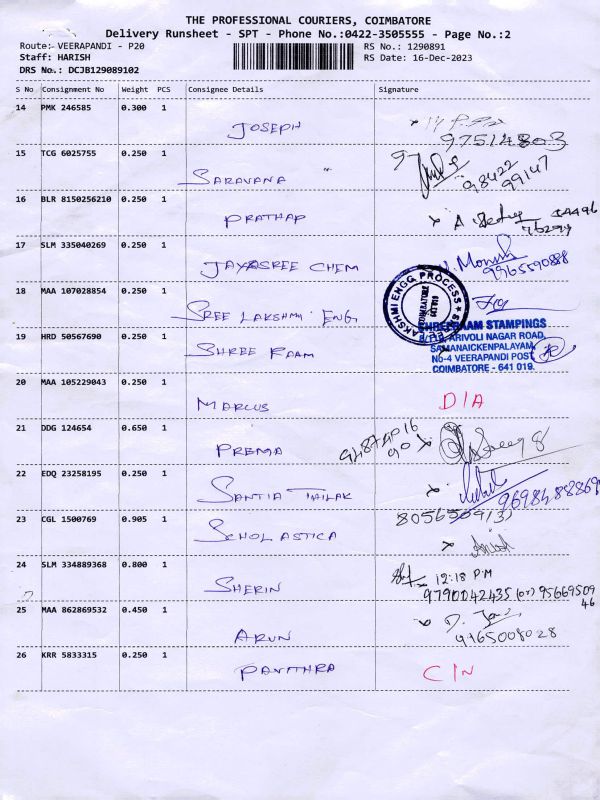 THE PROFESSIONAL COURIERS, COIMBATORE
Delivery Runsheet - SPT - Phone No.:0422-3505555 - Page No.:2
Route:- VEERAPANDI - P20
RS No.: 1290891
Staff: HARISH
RS Date: 16-Dec-2023
DRS No.: DCJB129089102
S No Consignment No Weight PCS Consignee Details Signature
14 PMK 246585 0.300 1
JOSEPH
97514803
15 TCG 6025755 0.250 1
SARAVANA
98422
99147
16 BLR 8150256210 0.250 1
PRATHAP
17 SLM 335040269 0.250 1
JAYASREE CHEM
9965590888
18 MAA 107028854 0.250 1
SREE LAKSHMI ENG
LAKSHMI ENGG PROCESS
COIMBATORE
19 HRD 50567690 0.250 1
SHREE RAAM
SHREERAAM STAMPINGS
ARIVOLI NAGAR ROAD,
SAMANAICKENPALAYAM,
No-4 VEERAPANDI POST,
COIMBATORE - 641 019.
20 MAA 105229043 0.250 1
MARCUS
D/A
21 DDG 124654 0.650 1
PREMA
22 EDQ 23258195 0.250 1
SANTIA THILAK
23 CGL 1500769 0.905 1
SCHOLASTICA
24 SLM 334889368 0.800 1
SHERIN
12:18 PM
9790042435 (or) 95669509
46
25 MAA 862869532 0.450 1
ARUN
9965008028
26 KRR 5833315 0.250 1
PAVITHRA
C/N